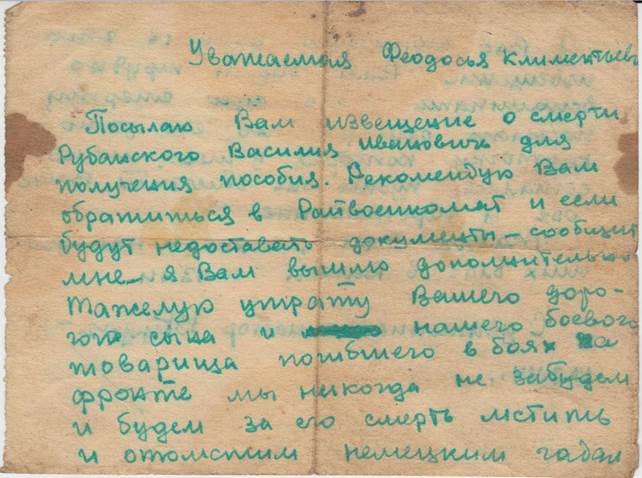 Уважаемая Феодосья Климентьевн
Посылаю Вам извещение о смерти
Рубанского Василия Ивановича для
получения пособия. Рекомендую Вам
обратиться в Райвоенкомат и если
будут недоставать документы – сообщит
мне – я Вам вышлю дополнительно
Тяжелую утрату Вашего доро-
гого сына и нашего боевого
товарища погибшего в боях на
фронте мы никогда не забудем
и будем за его смерть мстить
и отомстим немецким гадам